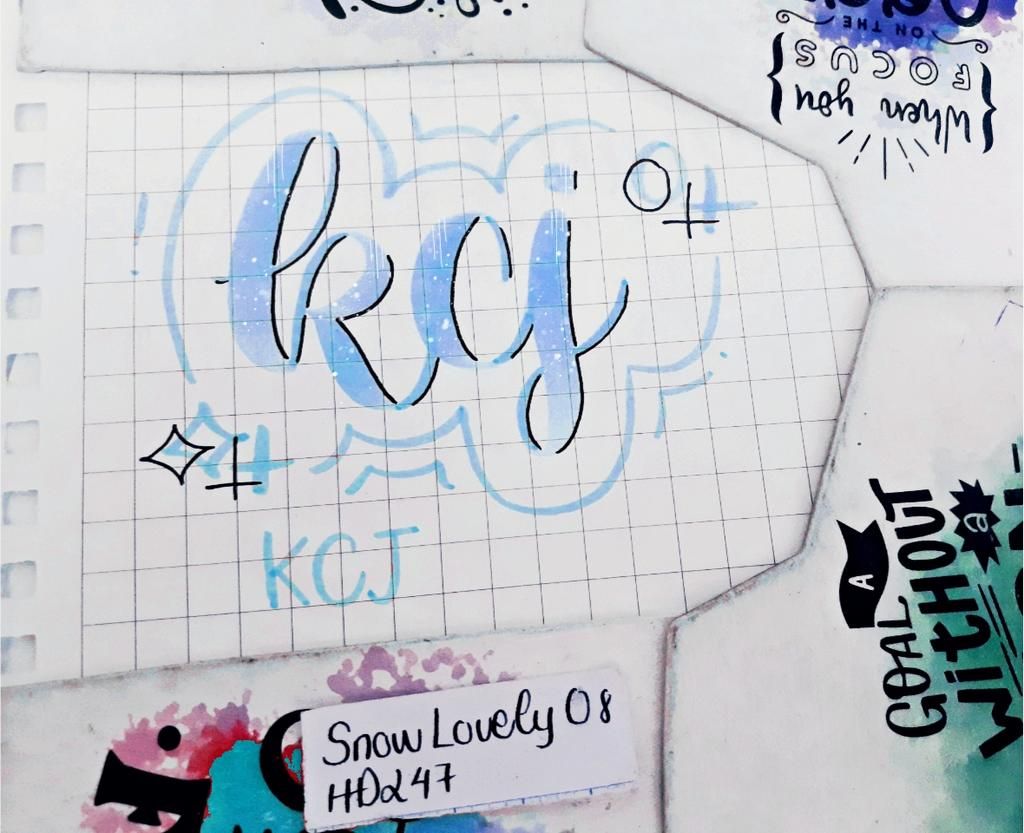 ON THE
FOCUS
When you
kcj
KCJ
A
GOAL
WitHOUT
a
Snow Lovely 08
HDd47